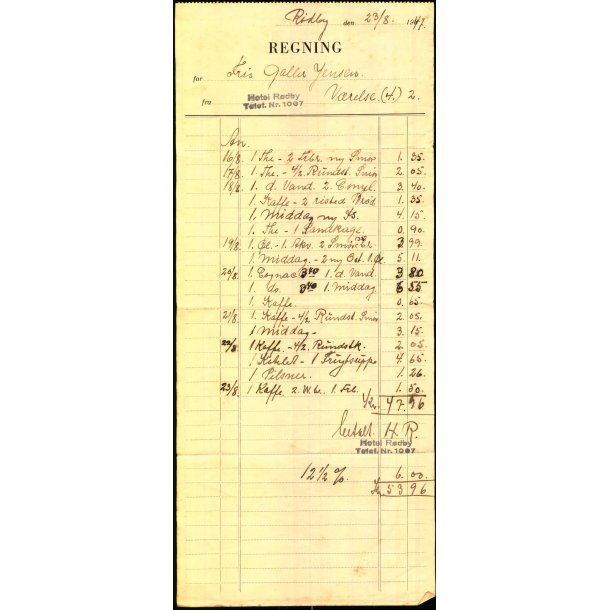 Rødby den 23/8. 1947.
REGNING
for Frk Galler Jensen.
fra Hotel Rødby Værelse (4.) 2.
Telef. Nr. 1067
An.
16/8 1 The - 2 Frbr. m/ Smør 1. 35.
17/8 1 The. - 4/2 Rundst. Smør 2. 05.
18/8 1. d. Vand 2. 3. 40.
1 Kaffe - 2 risted Brød 1. 35
1. Middag m/ Is. 4. 15.
1. The - 1 0. 90.
19/8 1. Øl. - 1 Akv. 2 3. 99.
1. Middag. - 2 m/ Ost. 1. Øl 5. 11
20/8 1 Cognac 1. d. Vand 3 80
1. do. 1 Middag. 6 55
1. Kaffe. 0. 65
21/8 1. Kaffe - 4/2 Rundst. Smør 2. 05.
1 Middag - 3. 15.
22/8 1 Kaffe. - 4/2. Rundstk. 2. 05.
1 - 1 Frugtsuppe 4. 65
1 Pilsner. 1. 26
23/8 1 Kaffe 2. W.br. 1 Frb. 1. 50.
Kr. 47. 96
betalt. H. R.
Hotel Rødby
Telef. Nr. 1067
12 1/2 %. 6. 00.
Kr. 53 96